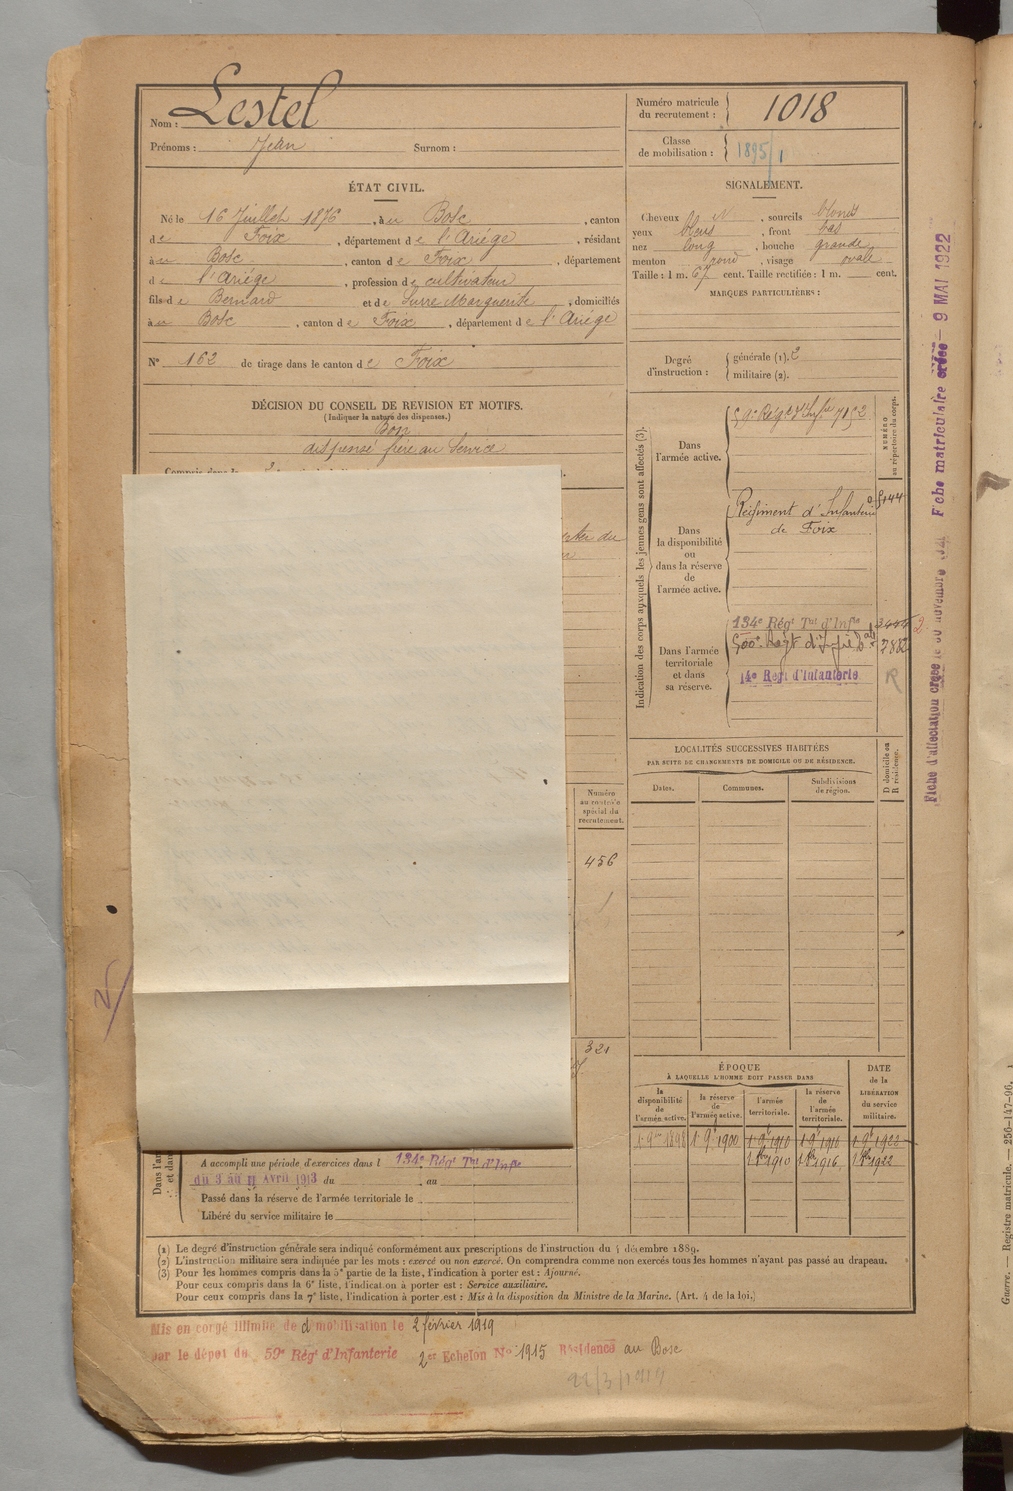 Nom : Lestel
Prénoms : Jean Surnom :
Numéro matricule du recrutement : 1018
Classe de mobilisation : 1895/1
ÉTAT CIVIL.
Né le 16 Juillet 1876, à au Bosc, canton
de Foix, département de l'Ariège, résidant
à au Bosc, canton de Foix, département
de l'Ariège, profession de cultivateur
fils de Bernard et de Surre Marguerite, domiciliés
à au Bosc, canton de Foix, département de l'Ariège
N° 162 de tirage dans le canton de Foix
SIGNALEMENT.
Cheveux bl N, sourcils blonds
yeux bleus, front bas
nez long, bouche grande
menton rond, visage ovale
Taille : 1 m. 67 cent. Taille rectifiée : 1 m. cent.
MARQUES PARTICULIÈRES :
Degré d'instruction : générale (1). 2
militaire (2).
DÉCISION DU CONSEIL DE REVISION ET MOTIFS.
(Indiquer la nature des dispenses.)
Bon
dispensé frère au service
Compris dans la
Indication des corps auxquels les jeunes gens sont affectés (3).
NUMÉRO au répertoire du corps.
Dans l'armée active.
59e Régt d'Infie 7152
Dans la disponibilité ou dans la réserve de l'armée active.
Régiment d'Infanterie
de Foix
Dans l'armée territoriale et dans sa réserve.
134e Régt Tal d'Infie
500e Régt d'Infie
14e Régt d'Infanterie
R
LOCALITÉS SUCCESSIVES HABITÉES
PAR SUITE DE CHANGEMENTS DE DOMICILE OU DE RÉSIDENCE.
Dates. Communes. Subdivisions de région. D domicile ou R résidence.
Numéro au contrôle spécial du recrutement.
456
321
ÉPOQUE
À LAQUELLE L'HOMME DOIT PASSER DANS
la disponibilité de l'armée active. la réserve de l'armée active. l'armée territoriale. la réserve de l'armée territoriale.
DATE de la LIBÉRATION du service militaire.
1 9bre 1898 1 9bre 1900 1 9bre 1910 1 9bre 1916 1 9bre 1922
1 8bre 1910 1 8bre 1916 1 8bre 1922
A accompli une période d'exercices dans l 134e Régt Tal d'Infie
du 3 au 11 Avril 1913 du au
Passé dans la réserve de l'armée territoriale le
Libéré du service militaire le
(1) Le degré d'instruction générale sera indiqué conformément aux prescriptions de l'instruction du 4 décembre 1889.
(2) L'instruction militaire sera indiquée par les mots : exercé ou non exercé. On comprendra comme non exercés tous les hommes n'ayant pas passé au drapeau.
(3) Pour les hommes compris dans la 5e partie de la liste, l'indication à porter est : Ajourné.
Pour ceux compris dans la 6e liste, l'indication à porter est : Service auxiliaire.
Pour ceux compris dans la 7e liste, l'indication à porter est : Mis à la disposition du Ministre de la Marine. (Art. 4 de la loi.)
Mis en congé illimité de démobilisation le 2 février 1919
par le dépôt du 59e Régt d'Infanterie 2er Echelon N° 1915 Résidence au Bosc
22/3/1919
Fiche d'affectation créée le 30 novembre 1921 Fiche matriculaire créée 9 MAI 1922
Guerre. — Registre matricule. — 256-147-96.